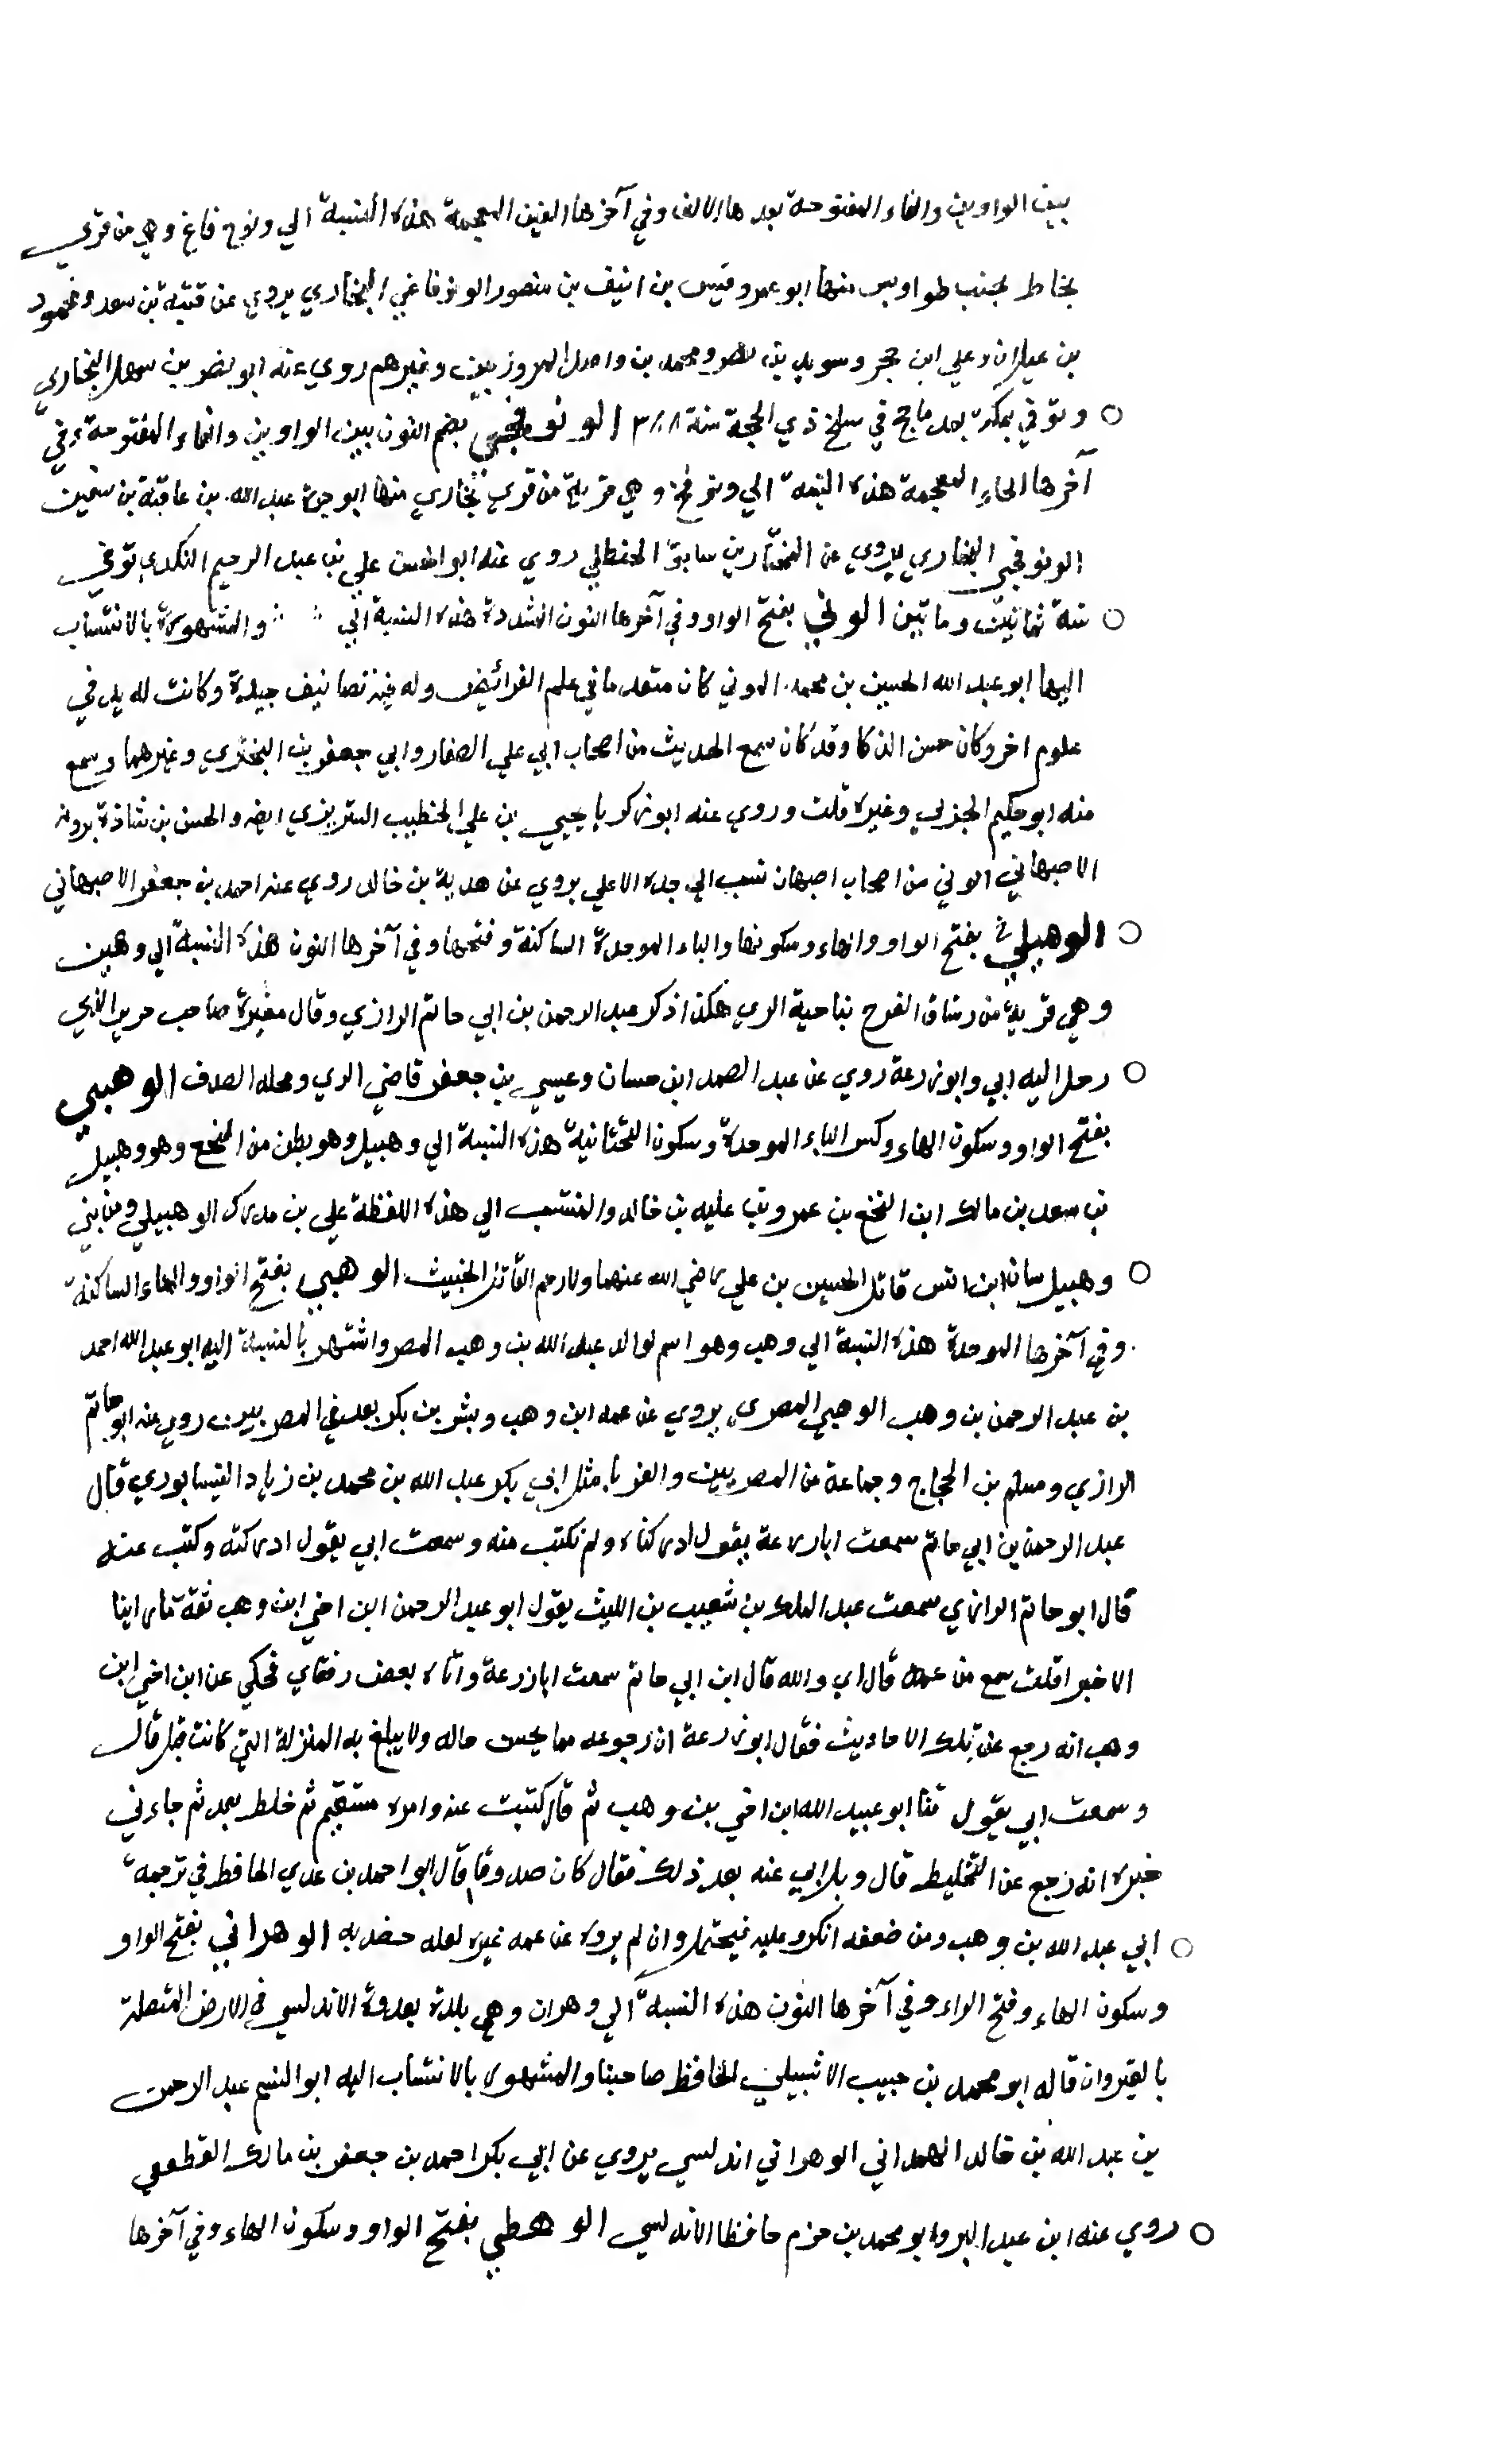 بين الواوين والفاء المفتوحة بعدها الالف وفي آخرها الغين المعجمة هذه النسبة الي ونوفاغ وهي من قري
بخاط بجنب طواويس منها ابو عمرو قيس بن انيف بن منصور الونوفاغي البخاري يروي عن قتبة بن سعد ومحمود
بن غيلان وعلي ابن حجر وسويد بن نصر ومحمد بن واصل المروزيين وغيرهم روي عنه ابو نصر بن سهل البخاري
وتوفي بمكة بعد ما حج في سلخ ذي الحجة سنة ٣٨٨ الونوفخي بضم النون بين الواوين والفاء المفتوحة وفي
آخرها الخاء المعجمة هذه النسبة الي ونوفخ وهي قرية من قري بخاري منها ابو حمزة عبد الله بن عاقبة بن سفين
الونوفخي البخاري يروي عن المختار بن سابق الحنظلي روي عنه ابو الحسن علي بن عبد الرحيم النكدي توفي
سنة ثمانين وماتين الوني بفتح الواو وفي آخرها النون المشددة هذه النسبة الي والمشهورة بالانتساب
اليها ابو عبد الله الحسين بن محمد الوني كان متقدما في علم الفرائض وله فيه تصانيف جيدة وكانت له يد في
علوم اخر وكان حسن الذكا وقد كان سمع الحديث من اصحاب ابي علي الصفار وابي جعفر بن البختري وغيرهما وسمع
منه ابو حكيم الجزلي وغيره قلت وروي عنه ابو زكريا يحيي بن علي الخطيب التبريزي ايضا والحسن بن شاذة برونه
الاصبهاني الوني من اصحاب اصبهان نسب الي جده الاعلي يروي عن هدبة بن خالد روي عنه احمد بن جعفر الاصبهاني
الوهبلي بفتح الواو والهاء وسكونها والباء الموحدة الساكنة وفتحها وفي آخرها النون هذه النسبة الي وهبن
وهي قرية من رستاق الفرح بناحية الري هكذا ذكر عبد الرحمن بن ابي حاتم الرازي وقال مغيرة صاحب جرير الذي
رحل اليه ابي وابو زرعة روي عن عبد الصمد ابن حسان وعيسي بن جعفر قاضي الري ومحله الصدق الوهبي
بفتح الواو وسكون الهاء وكسر الباء الموحدة وسكون التحتانية هذه النسبة الي وهبيل وهو بطن من النخع وهو وهبيل
بن سعد بن مالك ابن النخع بن عمرو بن عليه بن خالد والمنتسب الي هذه اللفظة علي بن مدرك الوهبيلي ومن بني
وهبيل سنان ابن انس قاتل الحسين بن علي رضي الله عنهما ولا رحم القاتل الخبيث الوهبي بفتح الواو والهاء الساكنة
وفي آخرها الموحدة هذه النسبة الي وهب وهو اسم لوالد عبد الله بن وهب المصر واشتهر بالنسبة اليه ابو عبد الله احمد
بن عبد الرحمن بن وهب الوهبي المصري يروي عن عمه ابن وهب وبشر بن بكر يعد في المصريين روي عنه ابو حاتم
الرازي ومسلم بن الحجاج وجماعة من المصريين والغربا مثل ابي بكر عبد الله بن محمد بن زياد النيسابوري قال
عبد الرحمن بن ابي حاتم سمعت ابا زرعة يقول ادركناه ولم نكتب منه وسمعت ابي يقول ادركته وكتب عنه
قال ابو حاتم الرازي سمعت عبد الملك بن شعيب بن الليث يقول ابو عبد الرحمن ابن اخي ابن وهب ثقة ما راينا
الا خيرا قلت سمع من عمه قال اي والله قال ابن ابي حاتم سمعت ابا زرعة واتاه بعض رفقاي فحكي عن ابن اخي ابن
وهب انه رجع عن تلك الاحاديث فقال ابو زرعة ان رجوعه مما يحسن حاله ولا يبلغ به المنزلة التي كانت قبل قال
وسمعت ابي يقول ثنا ابو عبيد الله ابن اخي بن وهب ثم قال كتبت عنه وامره مستقيم ثم خلط بعد ثم جاءني
خبره انه رجع عن التخليط قال وسئل ابي عنه بعد ذلك فقال كان صدوقا قال ابو احمد بن عدي الحافظ في ترجمة
ابي عبد الله بن وهب ومن ضعفه انكرو عليه فيحتمل وان لم يروه عن عمه غيره لعله خصه به الوهراني بفتح الواو
وسكون الهاء وفتح الراء وفي آخرها النون هذه النسبة الي وهران وهي بلدة بعدوة الاندلس في الارض المتصلة
بالقيروان قاله ابو محمد بن حبيب الاشبيلي الحافظ صاحبنا والمشهور بالانتساب اليه ابو القسم عبد الرحمن
بن عبد الله بن خالد الهمداني الوهراني اندلسي يروي عن ابي بكر احمد بن جعفر بن مالك القطعي
روي عنه ابن عبد البر وابو محمد بن حزم حافظا الاندلسي الوهطي بفتح الواو وسكون الهاء وفي آخرها